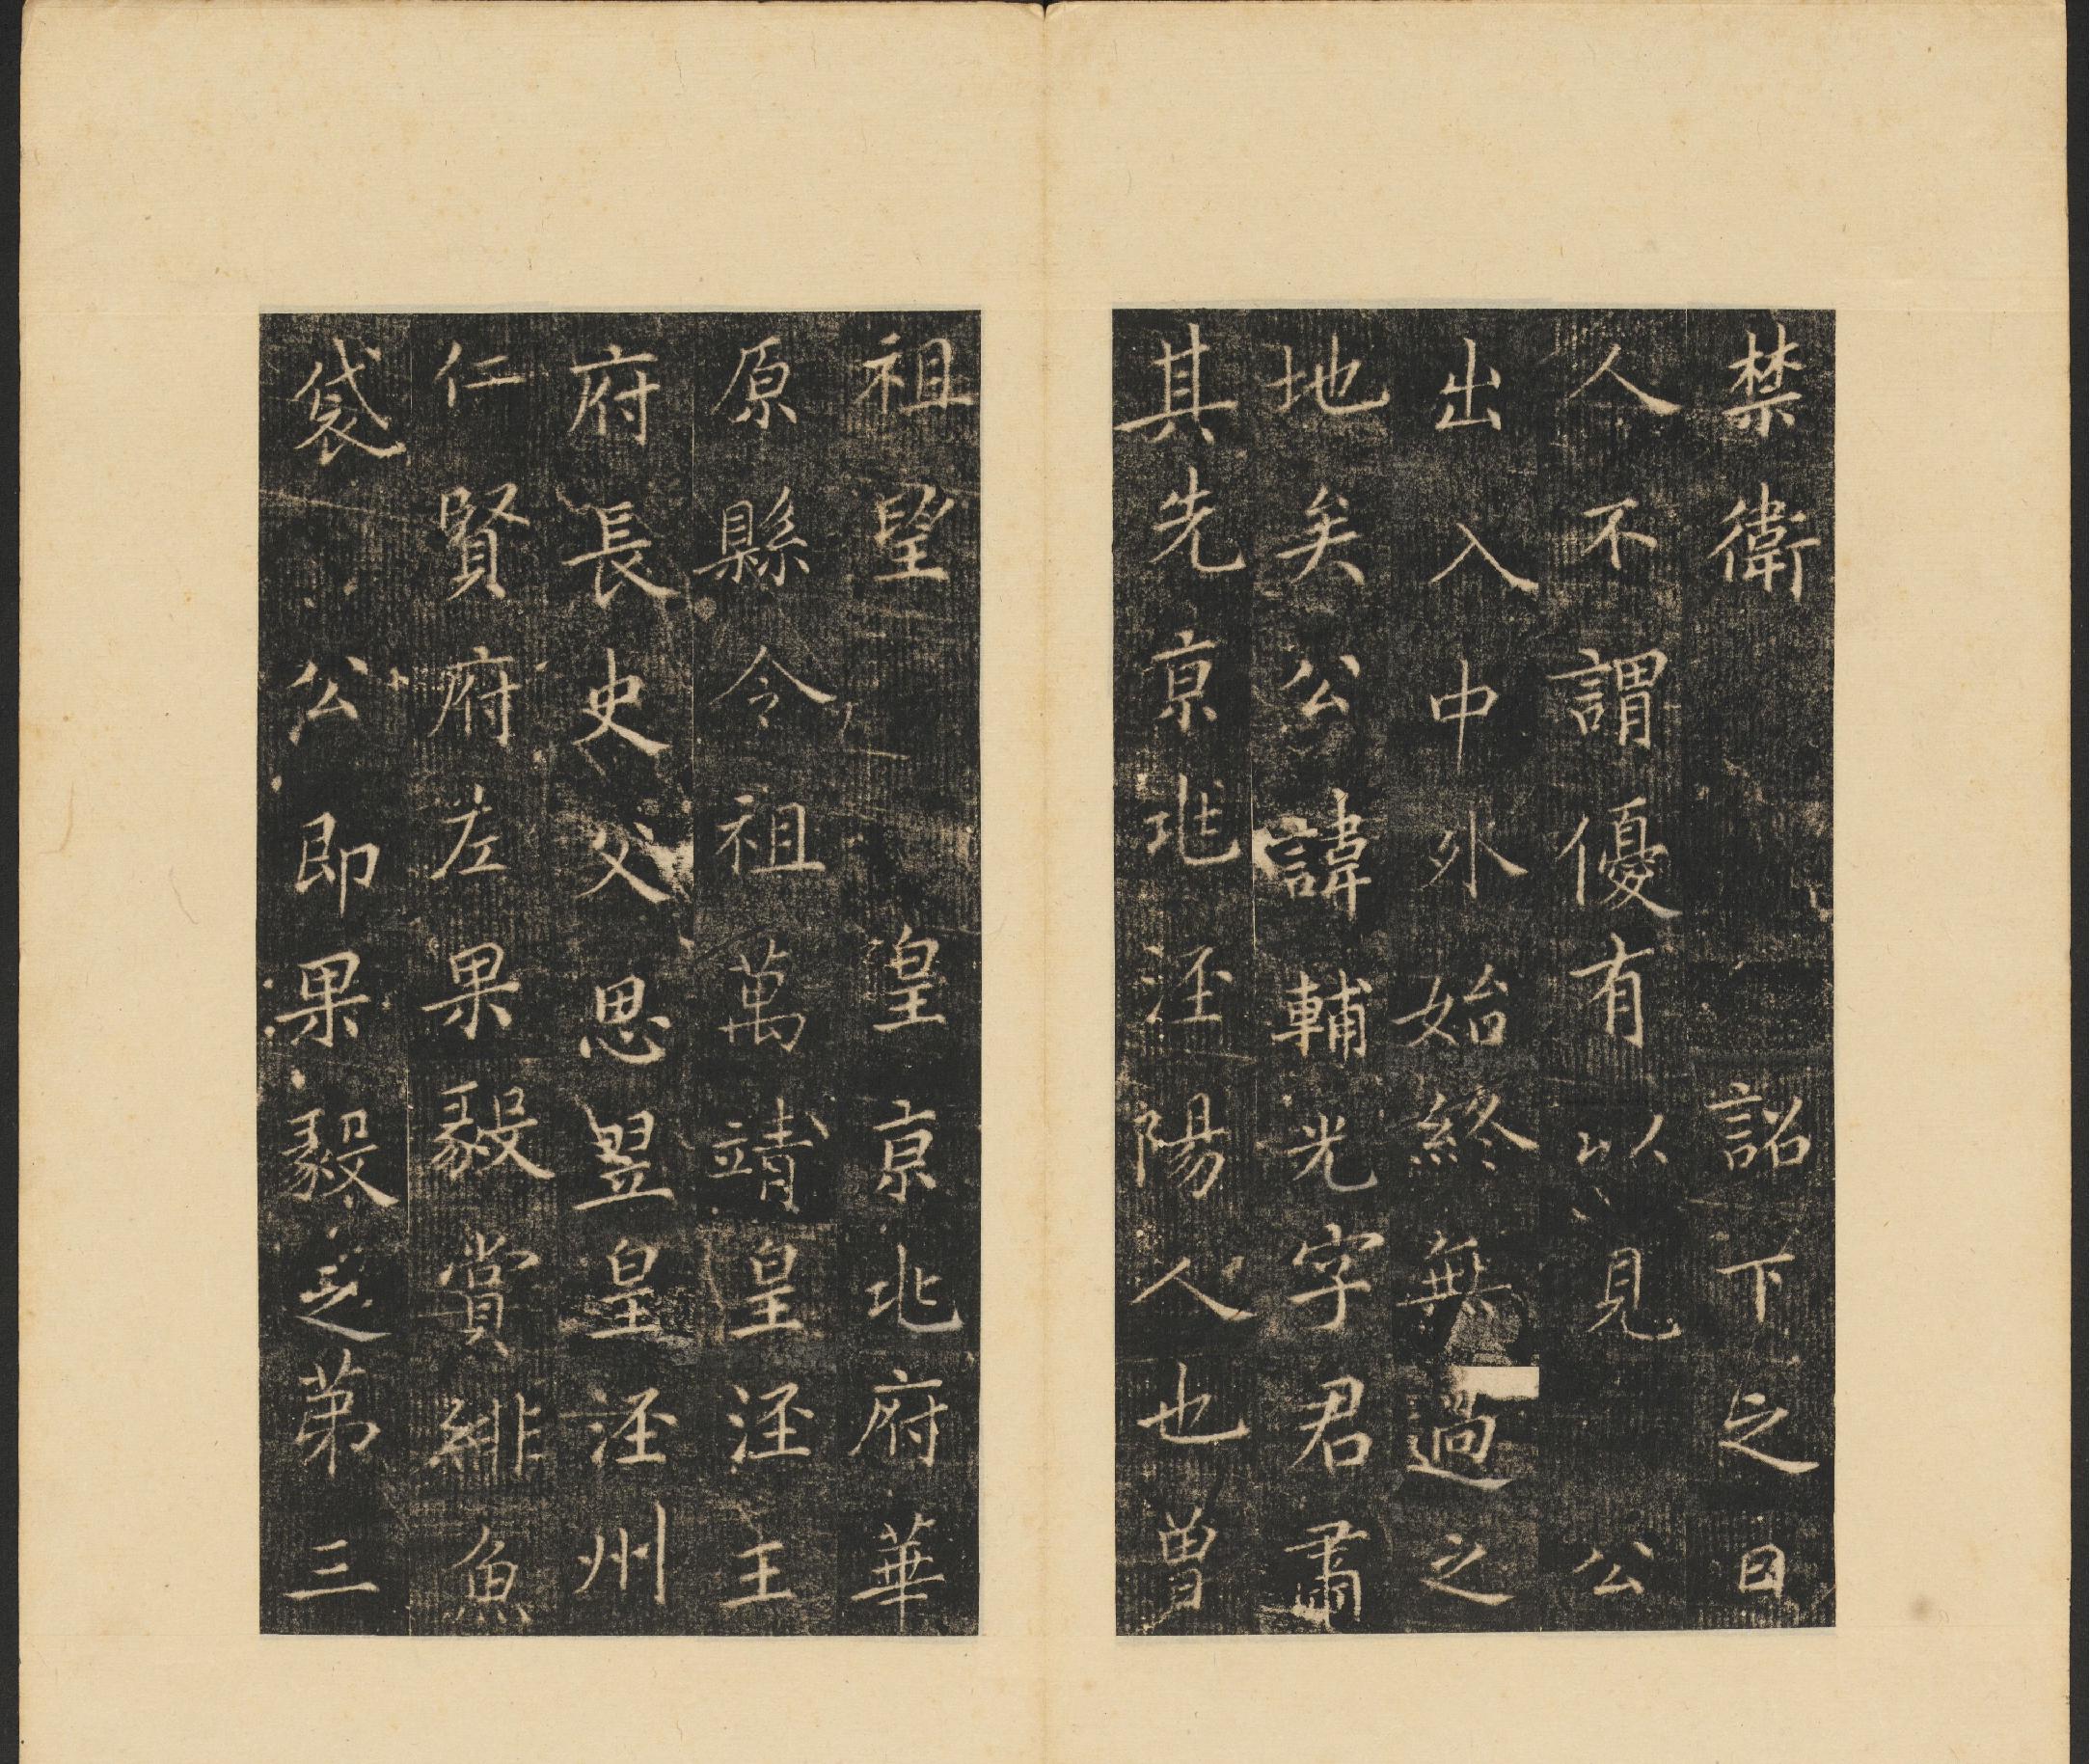 禁衛詔下之日
人不謂優有以見公
出入中外始終無過之
地矣公諱輔光字君肅
其先京兆涇陽人也曾
祖望皇京兆府華
原縣令祖萬靖皇涇王
府長史父思翌皇涇州
仁賢府左果毅賞緋魚
袋公即果毅之第三